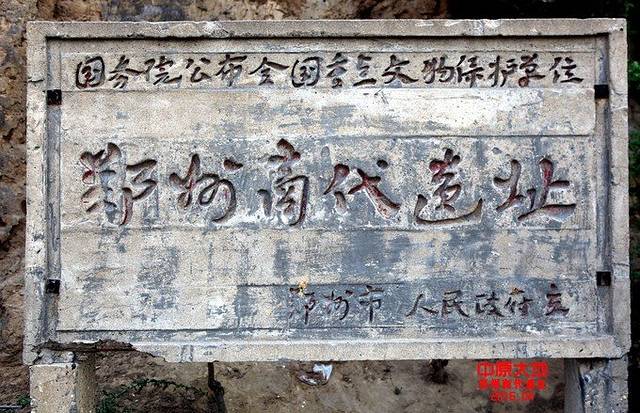 国务院公布全国重点文物保护单位
郑州商代遗址
郑州市 人民政府立
中原大地
郑州商代遗址